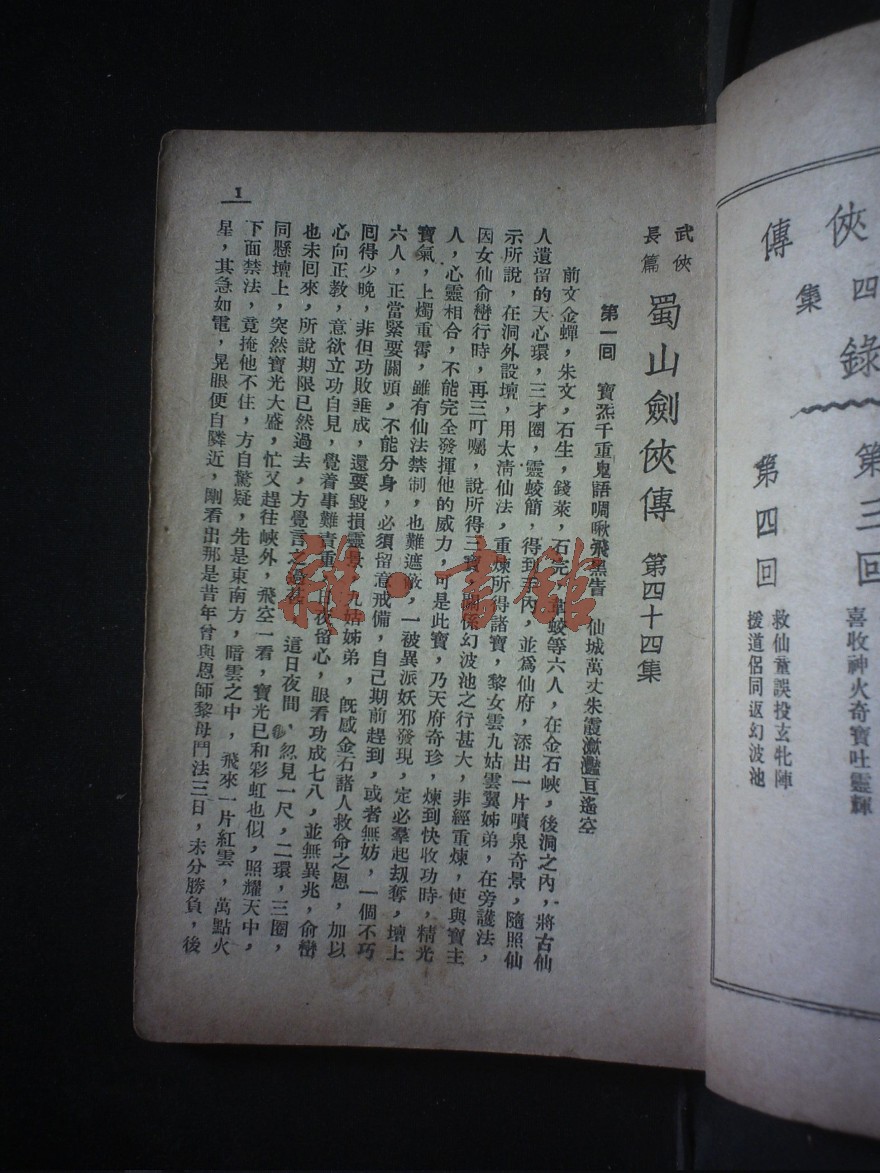 俠
四
錄
傳
集
第三回
喜收神火奇寶吐靈輝
第四回
救仙童誤投玄牝陣
援道侶同返幻波池
武俠
長篇
蜀山劍俠傳 第四十四集
第一回 寶炁千重鬼語啁啾飛黑眚 仙城萬丈朱霞瀲灩亘遙空
前文金蟬，朱文，石生，錢萊，石完，韋蛟等六人，在金石峽，後洞之內，將古仙
人遺留的大心環，三才圈，靈蛟簡，得到手內，並爲仙府，添出一片噴泉奇景，隨照仙
示所說，在洞外設壇，用太清仙法，重煉所得諸寶，黎女雲九姑雲翼姊弟，在旁護法，
因女仙俞巒行時，再三叮囑，說所得三寶，關係幻波池之行甚大，非經重煉，使與寶主
人，心靈相合，不能完全發揮他的威力，可是此寶，乃天府奇珍，煉到快收功時，精光
寶氣，上燭重霄，雖有仙法禁制，也難遮蔽，一被異派妖邪發現，定必羣起刼奪，壇上
六人，正當緊要關頭，不能分身，必須留意戒備，自己期前趕到，或者無妨，一個不巧
囘得少晚，非但功敗垂成，還要毀損靈景，九姑姊弟，旣感金石諸人救命之恩，加以
心向正教，意欲立功自見，覺着事難責重，日夜留心，眼看功成七八，並無異兆，俞巒
也未回來，所說期限已然過去，方覺言之過甚，這日夜間，忽見一尺，二環，三圈，
同懸壇上，突然寶光大盛，忙又趕往峽外，飛空一看，寶光已和彩虹也似，照耀天中，
下面禁法，竟掩他不住，方自驚疑，先是東南方，暗雲之中，飛來一片紅雲，萬點火
星，其急如電，晃眼便自隣近，剛看出那是昔年曾與恩師黎母鬥法三日，未分勝負，後
1
雜·書館